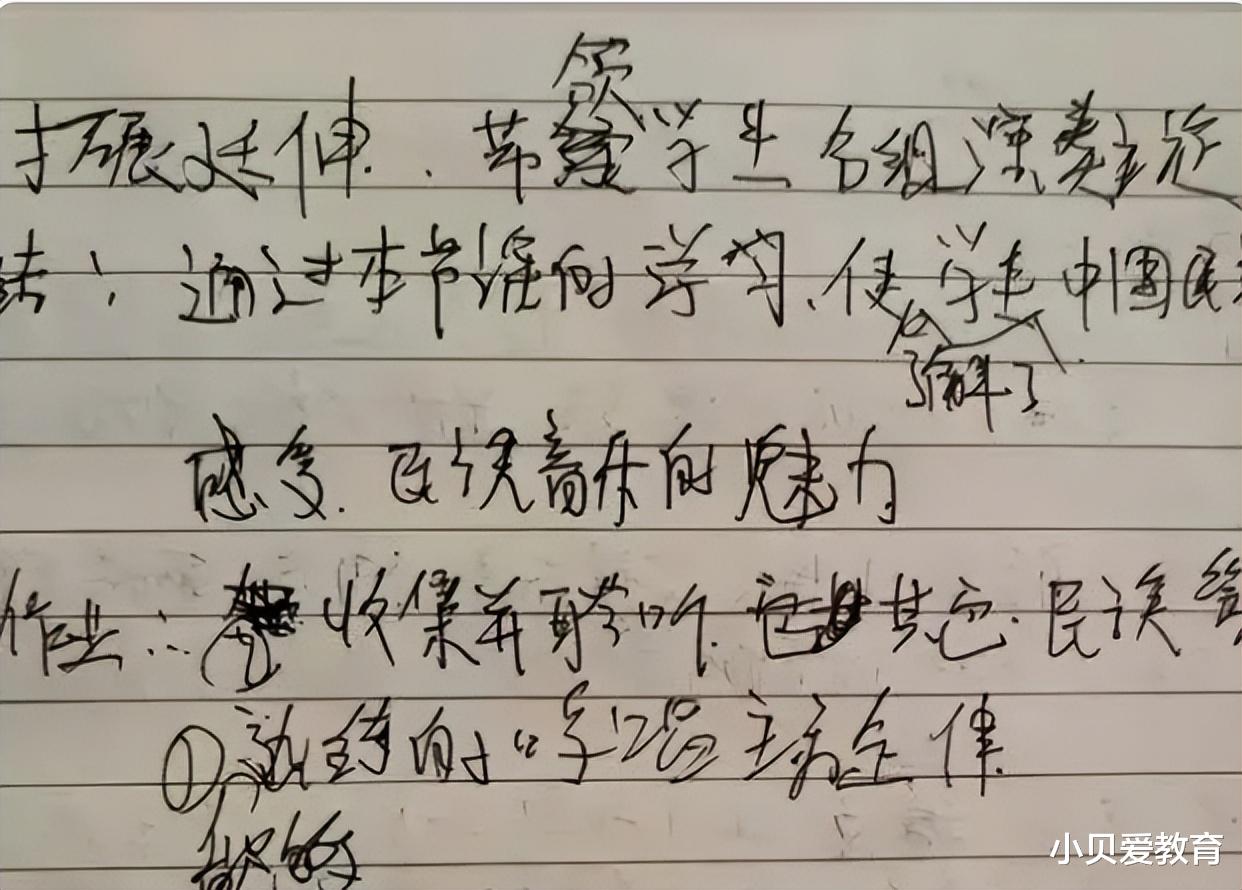 扩展延伸. 带领学生分组演奏主旋
结: 通过本节课的学习.使学生了解了中国民
感受.民族音乐的魅力
作业: ② 收集并聆听其它.民族
① 熟练的哼唱主旋律.
小贝爱教育